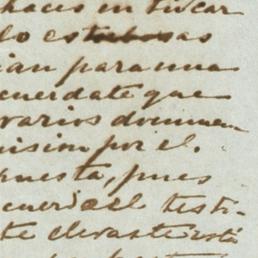 haces en buscar
lo es
ian para una
cuerdate que
varios documen
mision por el
puesta, pues
cuerda el testi-
te elevante está